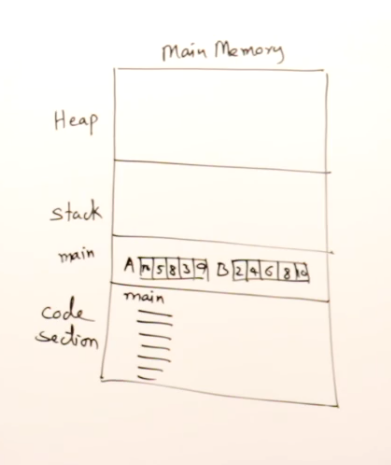 Main Memory
Heap
stack
main
A 5 8 3 9 B 2 4 6 8 10
main
code
section